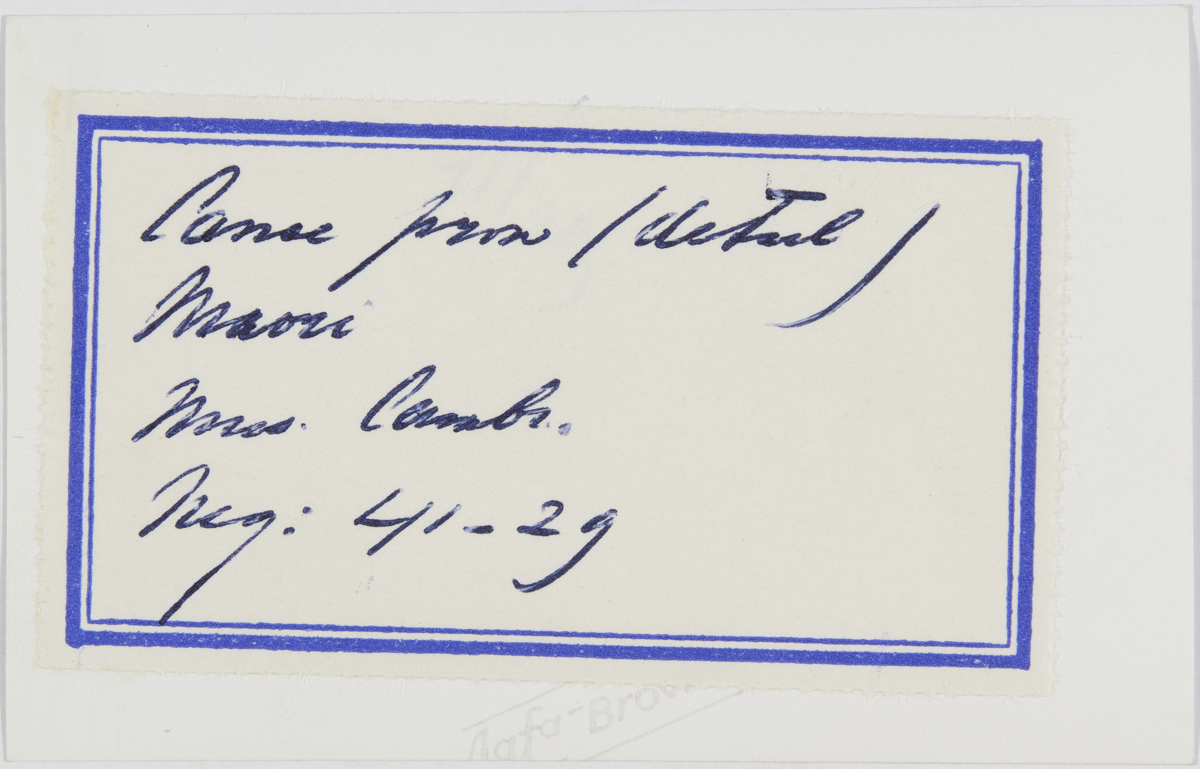 Canoe prow (detail)
Maori
Mus. Camb.
Neg: 41-29
Agfa-Brov